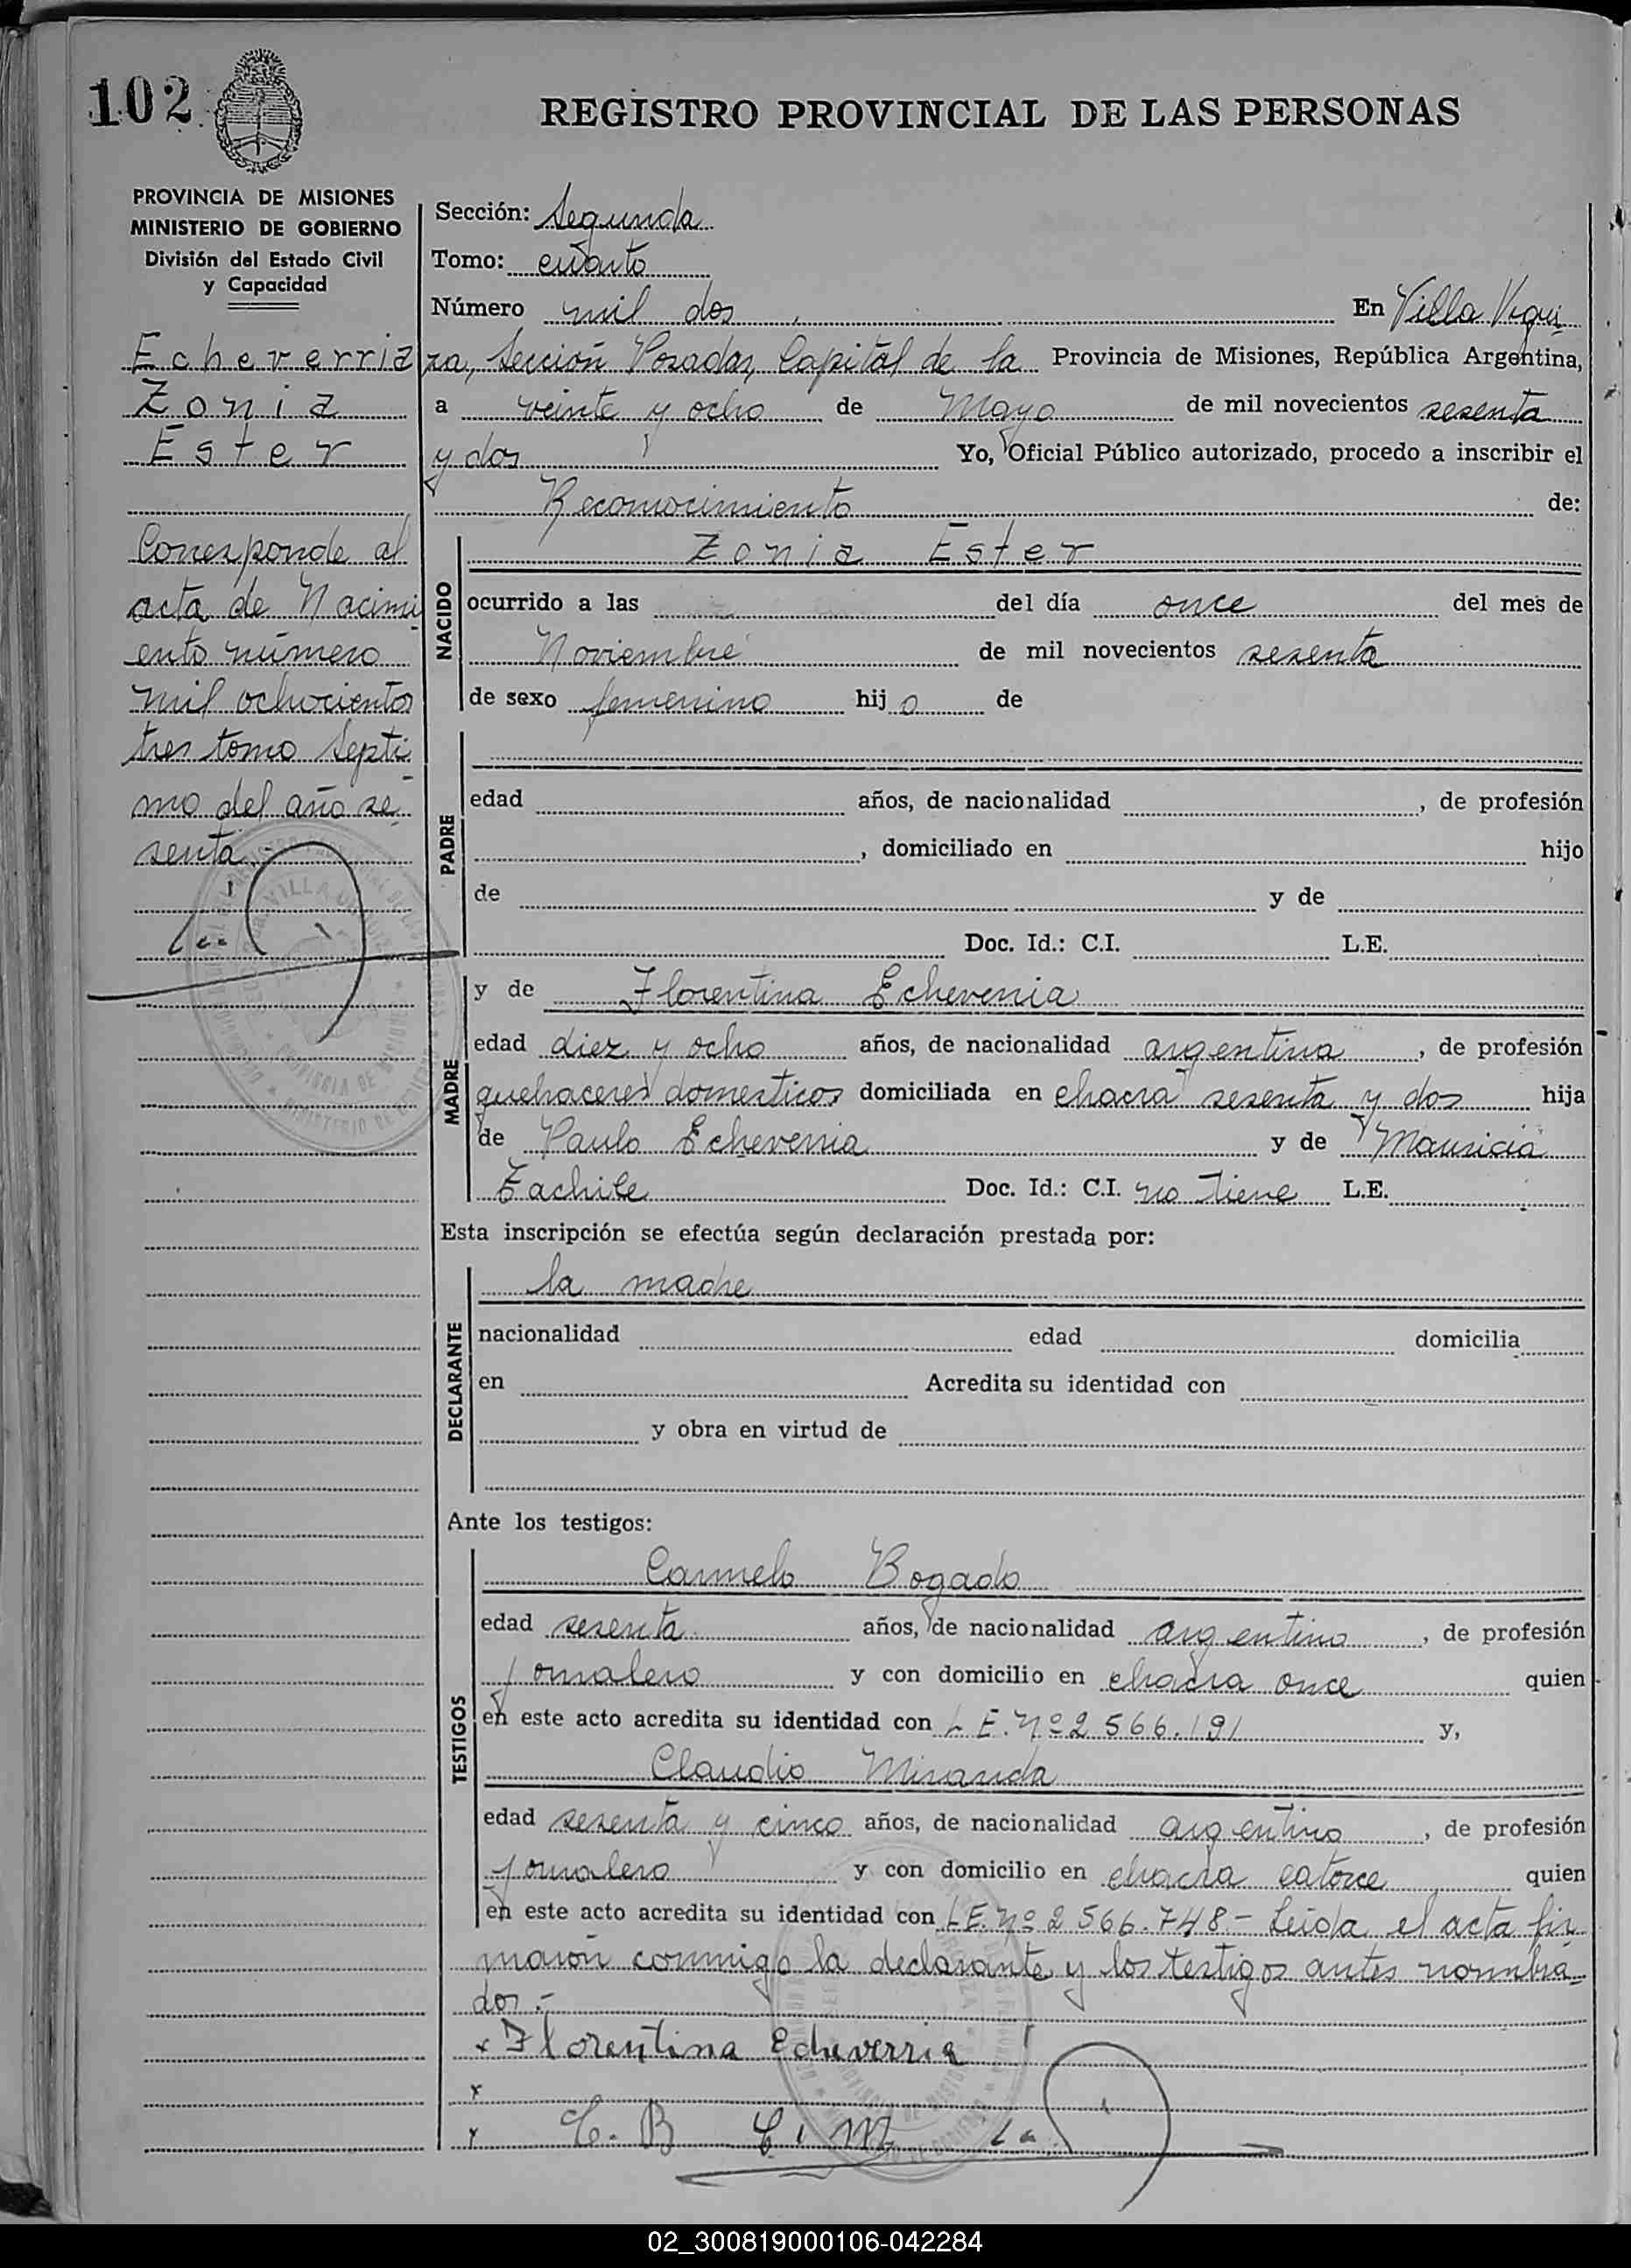 102
REGISTRO PROVINCIAL DE LAS PERSONAS
PROVINCIA DE MISIONES
MINISTERIO DE GOBIERNO
División del Estado Civil
y Capacidad
Echeverria
Zonia
Ester
Corresponde al
acta de Nacimi
ento número
mil ochocientos
tres tomo Septi
mo del año se-
senta.-
Sección: Segunda
Tomo: cuarto
Número mil dos, En Villa Urqui-
za, Sección Posadas, Capital de la Provincia de Misiones, República Argentina,
a veinte y ocho de Mayo de mil novecientos sesenta
y dos Yo, Oficial Público autorizado, procedo a inscribir el
Reconocimiento de:
NACIDO
Zonia Ester
ocurrido a las del día once del mes de
Noviembre de mil novecientos sesenta
de sexo femenino hijo de
PADRE
edad años, de nacionalidad , de profesión
, domiciliado en hijo
de y de
Doc. Id.: C.I. L.E.
MADRE
y de Florentina Echeverria
edad diez y ocho años, de nacionalidad argentina, de profesión
quehaceres domesticos domiciliada en chacra sesenta y dos hija
de Paulo Echeverria y de Mauricia
Zachile Doc. Id.: C.I. no tiene L.E.
Esta inscripción se efectúa según declaración prestada por:
DECLARANTE
la madre
nacionalidad edad domicilia
en Acredita su identidad con
y obra en virtud de
Ante los testigos:
TESTIGOS
Carmelo Bogado
edad sesenta años, de nacionalidad argentino, de profesión
jornalero y con domicilio en chacra once quien
en este acto acredita su identidad con L.E. Nº 2.566.191 y,
Claudio Miranda
edad sesenta y cinco años, de nacionalidad argentino, de profesión
jornalero y con domicilio en chacra catorce quien
en este acto acredita su identidad con L.E. Nº 2.566.748.- Leida el acta fir-
maron conmigo la declarante y los testigos antes nombra-
dos.-
x Florentina Echeverria
x
x C. B C. M
02_300819000106-042284